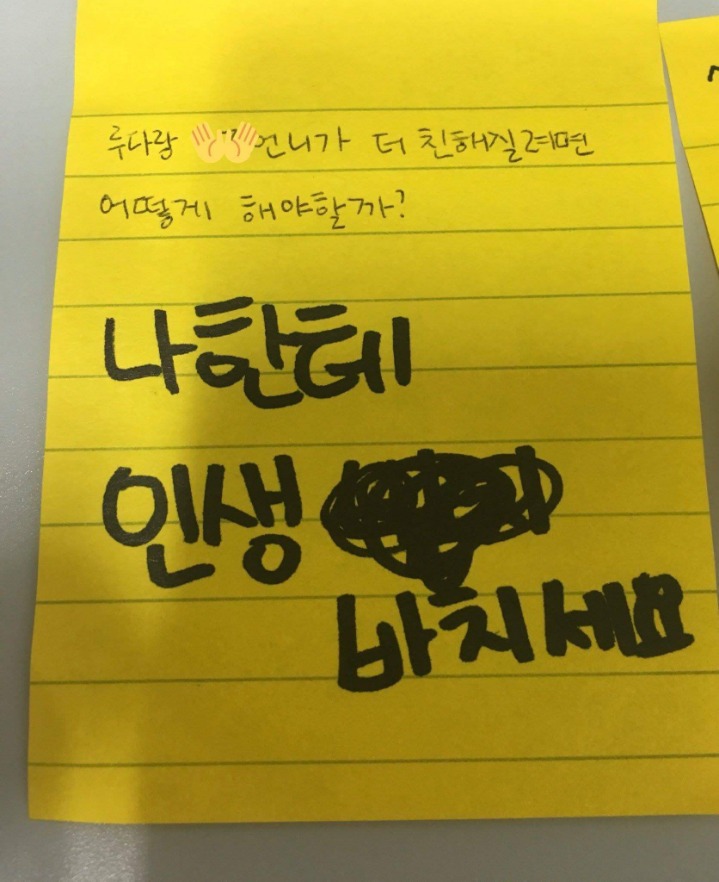 루다랑 언니가 더 친해질려면
어떻게 해야할까?
나한테
인생
바치세요